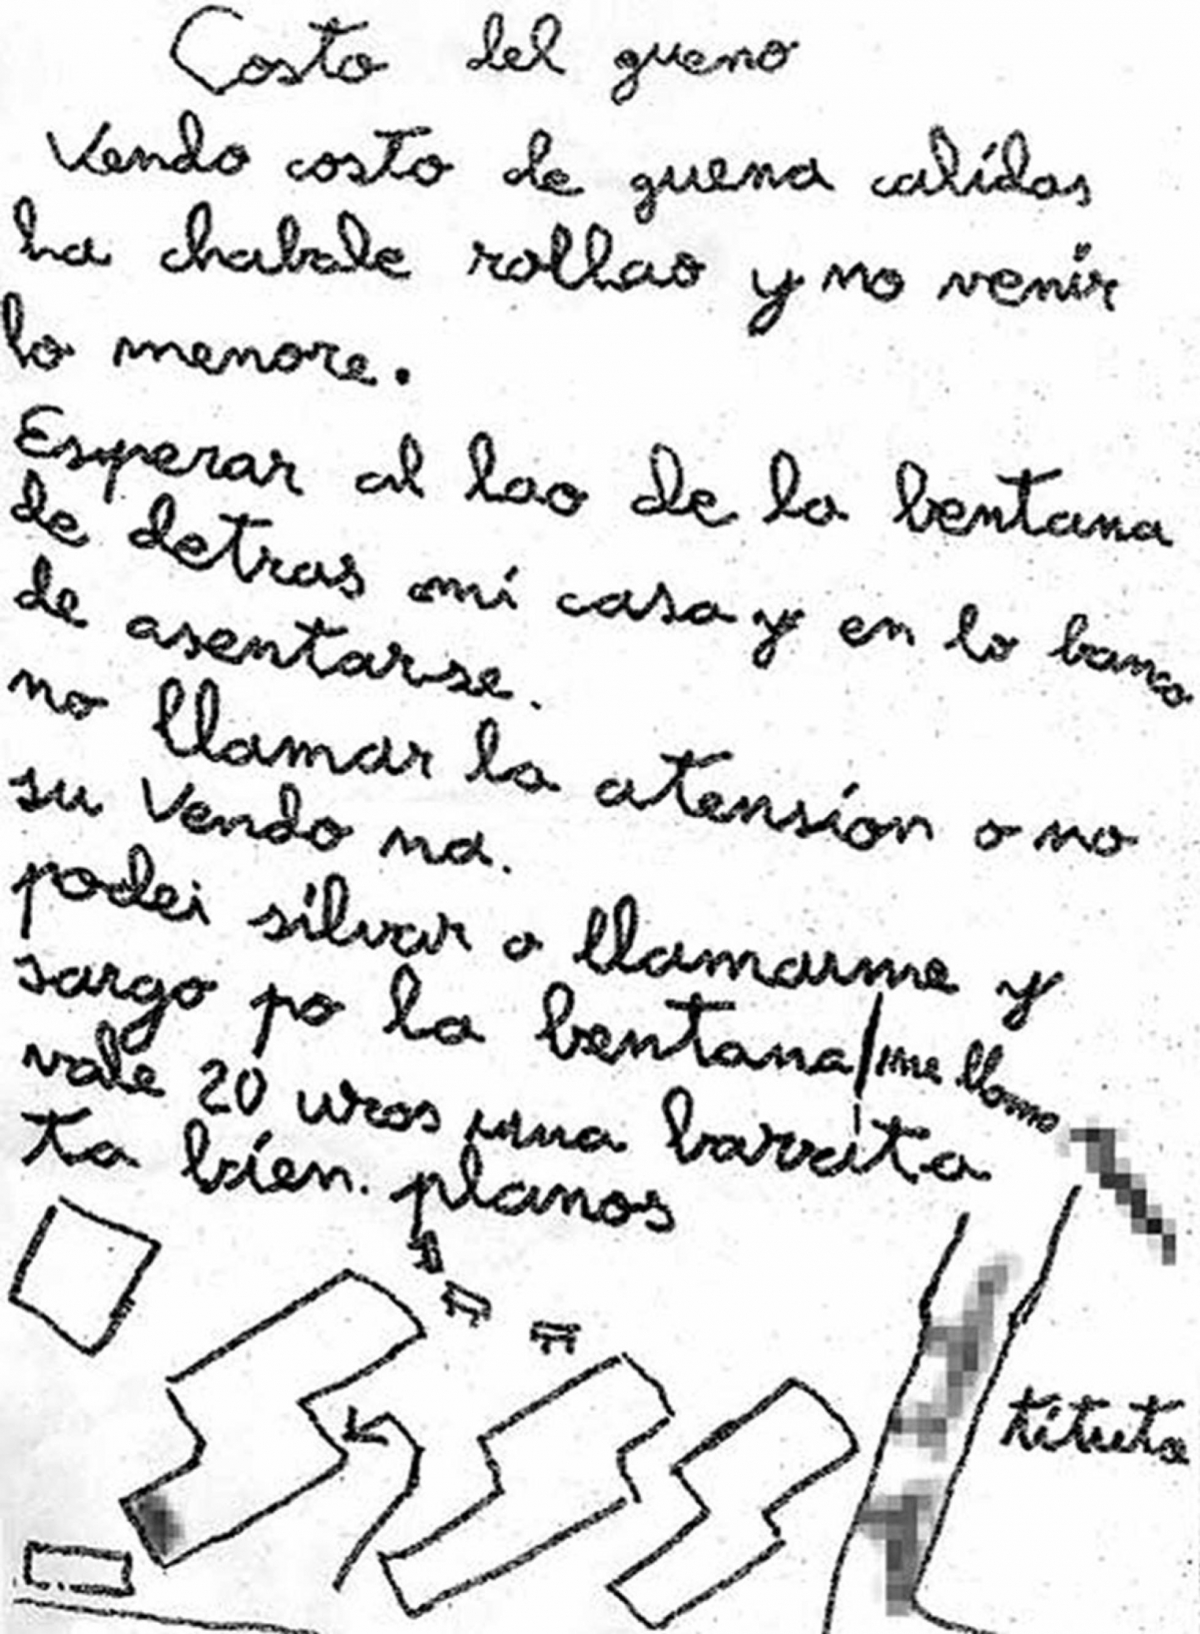 Costo del gueno
Vendo costo de guena calidas
ha chabale rollao y no venir
lo menore.
Esperar al lao de la bentana
de detras mi casa y en lo banco
de asentarse.
no llamar la atension o no
su Vendo na.
podei silvar o llamarme y
sargo po la bentana/me llamo
vale 20 uros una barrita
ta bien. planos
tituto